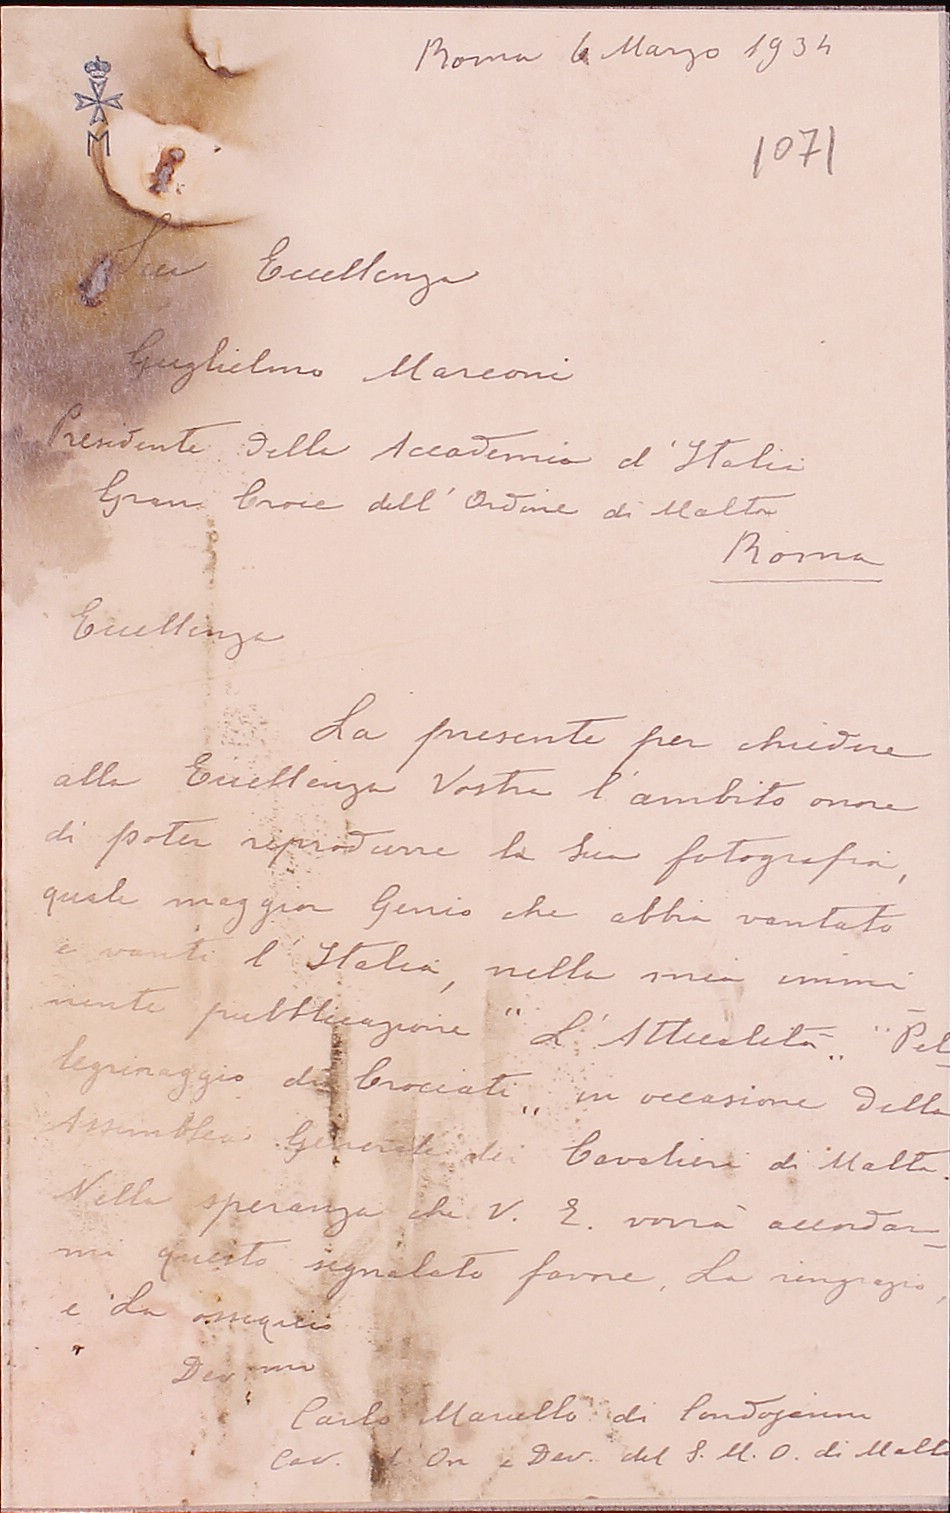 Roma 6 Marzo 1934
M
1071
Sua Eccellenza
Guglielmo Marconi
Presidente della Accademia d'Italia
Gran Croce dell'Ordine di Malta
Roma
Eccellenza
La presente per chiedere
alla Eccellenza Vostra l'ambito onore
di poter riprodurre la Sua fotografia,
quale maggior Genio che abbia vantato
e vanti l'Italia, nella mia immi
nente pubblicazione "L'Attualità" "Pel-
legrinaggio di Crociati" in occasione della
Assemblea Generale dei Cavalieri di Malta.
Nella speranza che V. E. vorrà accordar-
mi questo segnalato favore, La ringrazio,
e La ossequio
Dev.mo
Carlo Marcello di
Cav. d'On e Dev. del S. M. O. di Malta